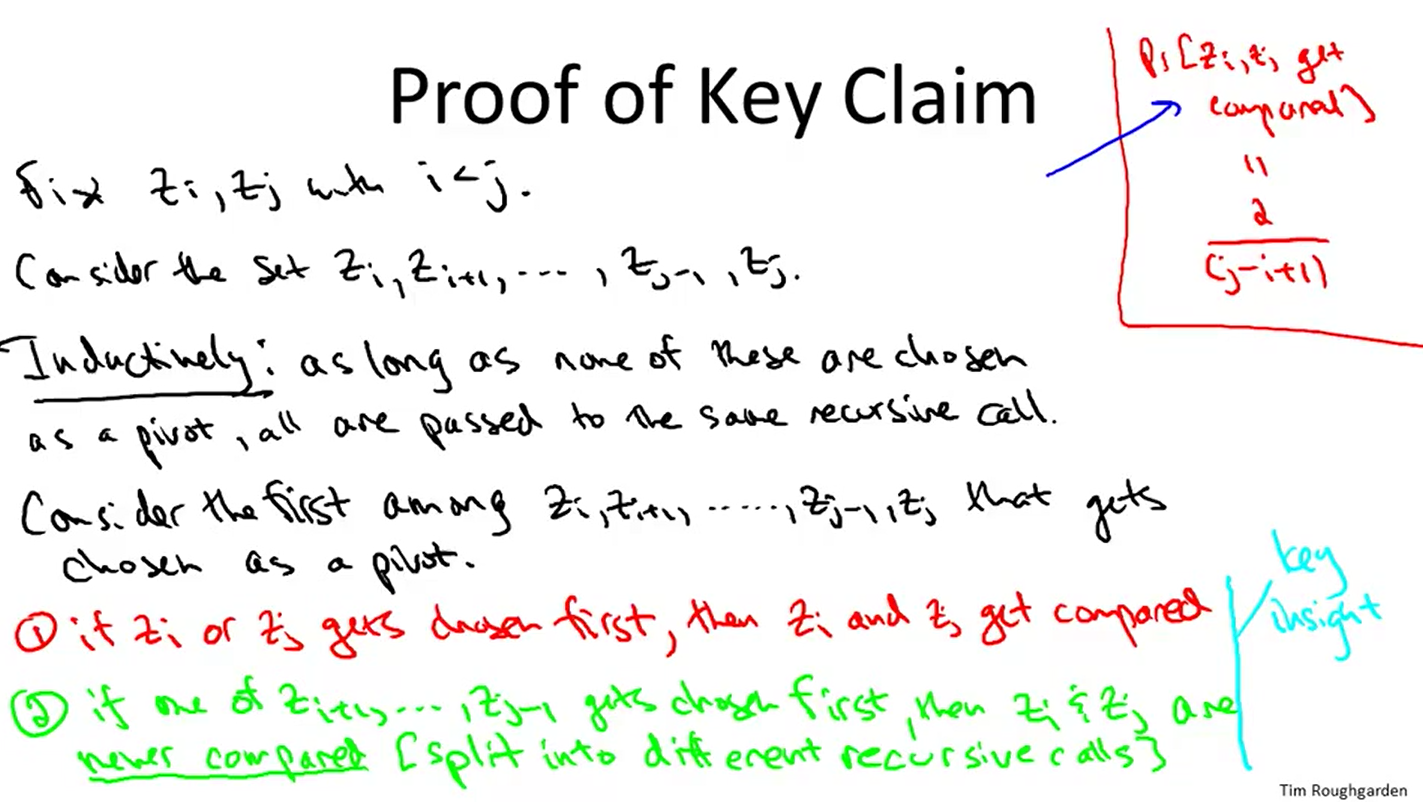 Proof of Key Claim
Pr[zi, zj get
compared]
=
2
(j-i+1)
Fix zi, zj with i<j.
Consider the set zi, zi+1, ..., zj-1, zj.
Inductively: as long as none of these are chosen
as a pivot, all are passed to the same recursive call.
Consider the first among zi, zi+1, ....., zj-1, zj that gets
chosen as a pivot.
① if zi or zj gets chosen first, then zi and zj get compared
② if one of zi+1, ..., zj-1 gets chosen first, then zi & zj are
never compared [split into different recursive calls]
key
insight
Tim Roughgarden